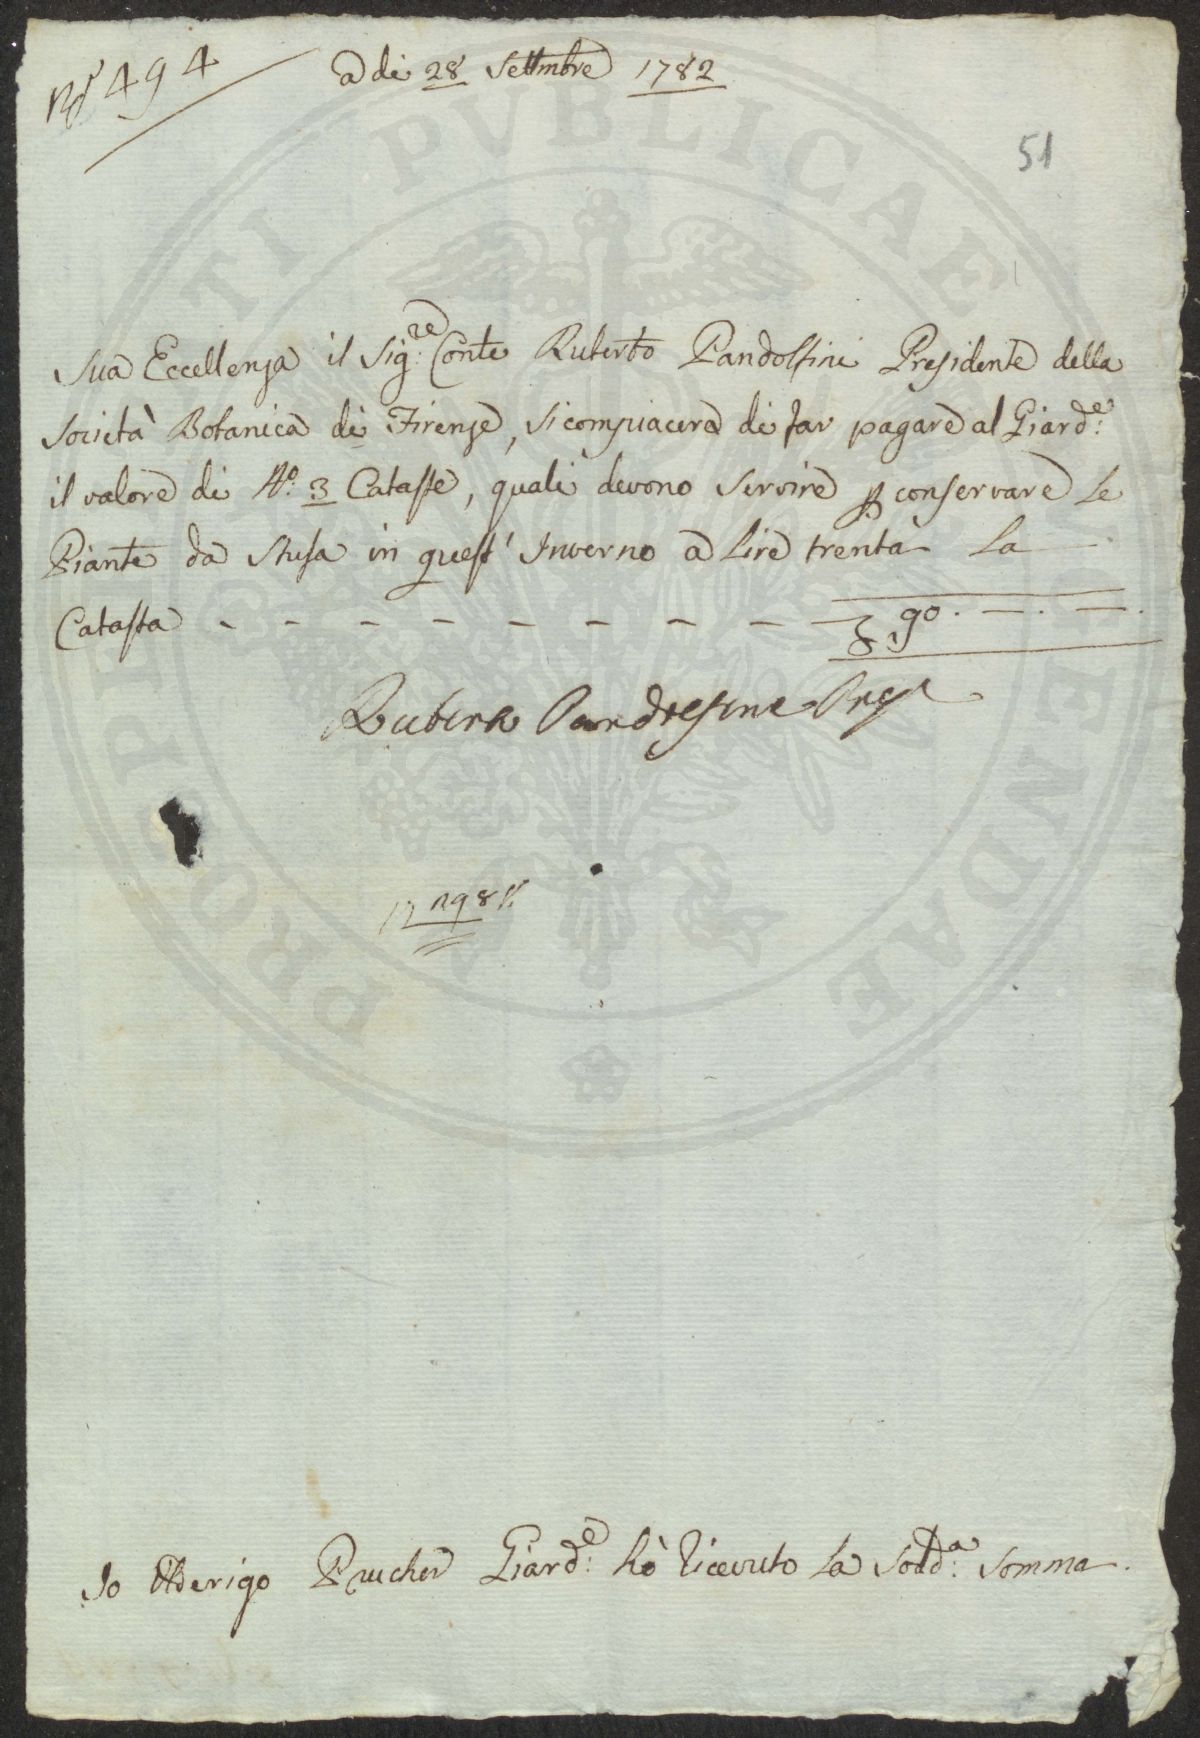 N.º 494
a di 28 Settmbre 1782
51
Sua Eccellenza il Sig:re Conte Ruberto Pandolfini Presidente della
Società Botanica di Firenze, si compiacerà di far pagare al Giard:e
il valore di N:o 3 Cataste, quali devono servire p conservare le
Piante da Stufa in quest' Inverno a Lire trenta la
Catasta - - - - - - - - - 90. —. —.
Ruberto Pandolfini Pres
Io Alderigo Prucher Giard:e hò ricevuto la Sodd:a Somma.
PROSPERITATI PVBLICAE AVGENDAE